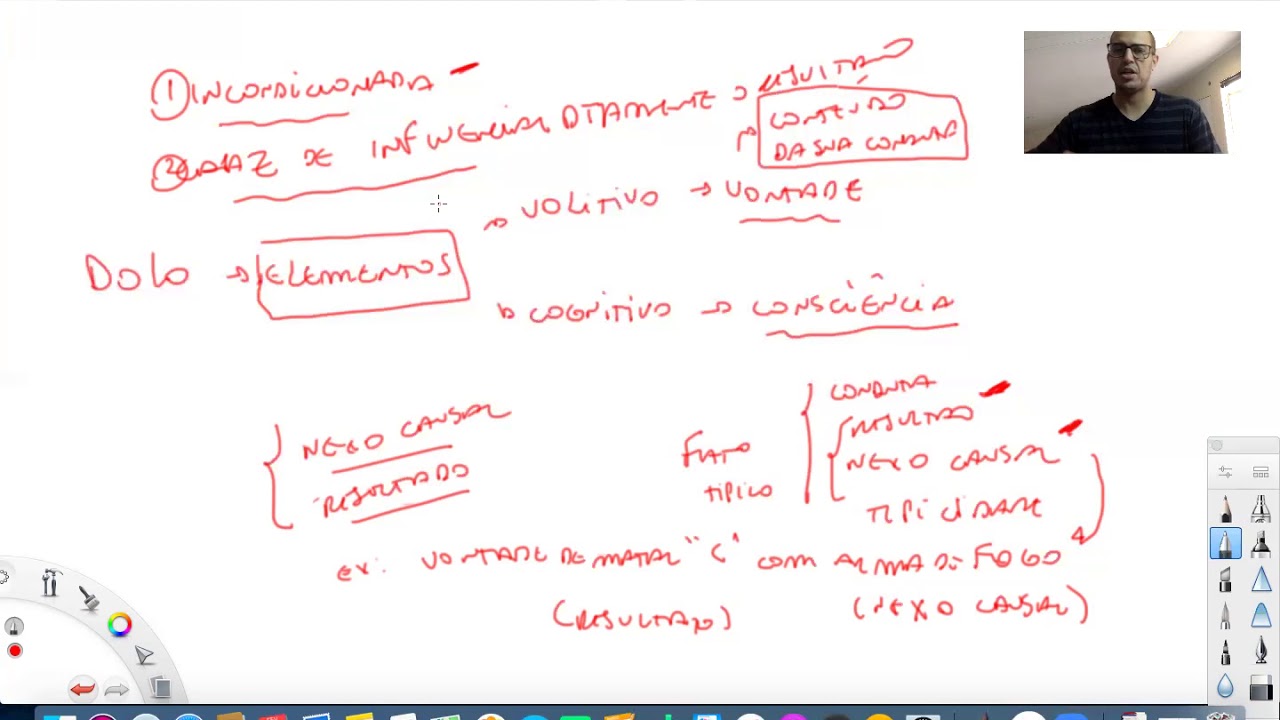 ① INCONDICIONADA
② CAPAZ DE INFLUENCIAR DTAMENTE → RESULTADO
CONTEÚDO
DA SUA CONDUTA
→ VOLITIVO → VONTADE
DOLO → ELEMENTOS
↳ COGNITIVO → CONSCIÊNCIA
NEXO CAUSAL
RESULTADO
FATO
TÍPICO
CONDUTA
RESULTADO
NEXO CAUSAL
TIPICIDADE
EX: VONTADE DE MATAR "C" COM ARMA DE FOGO
(RESULTADO) (NEXO CAUSAL)